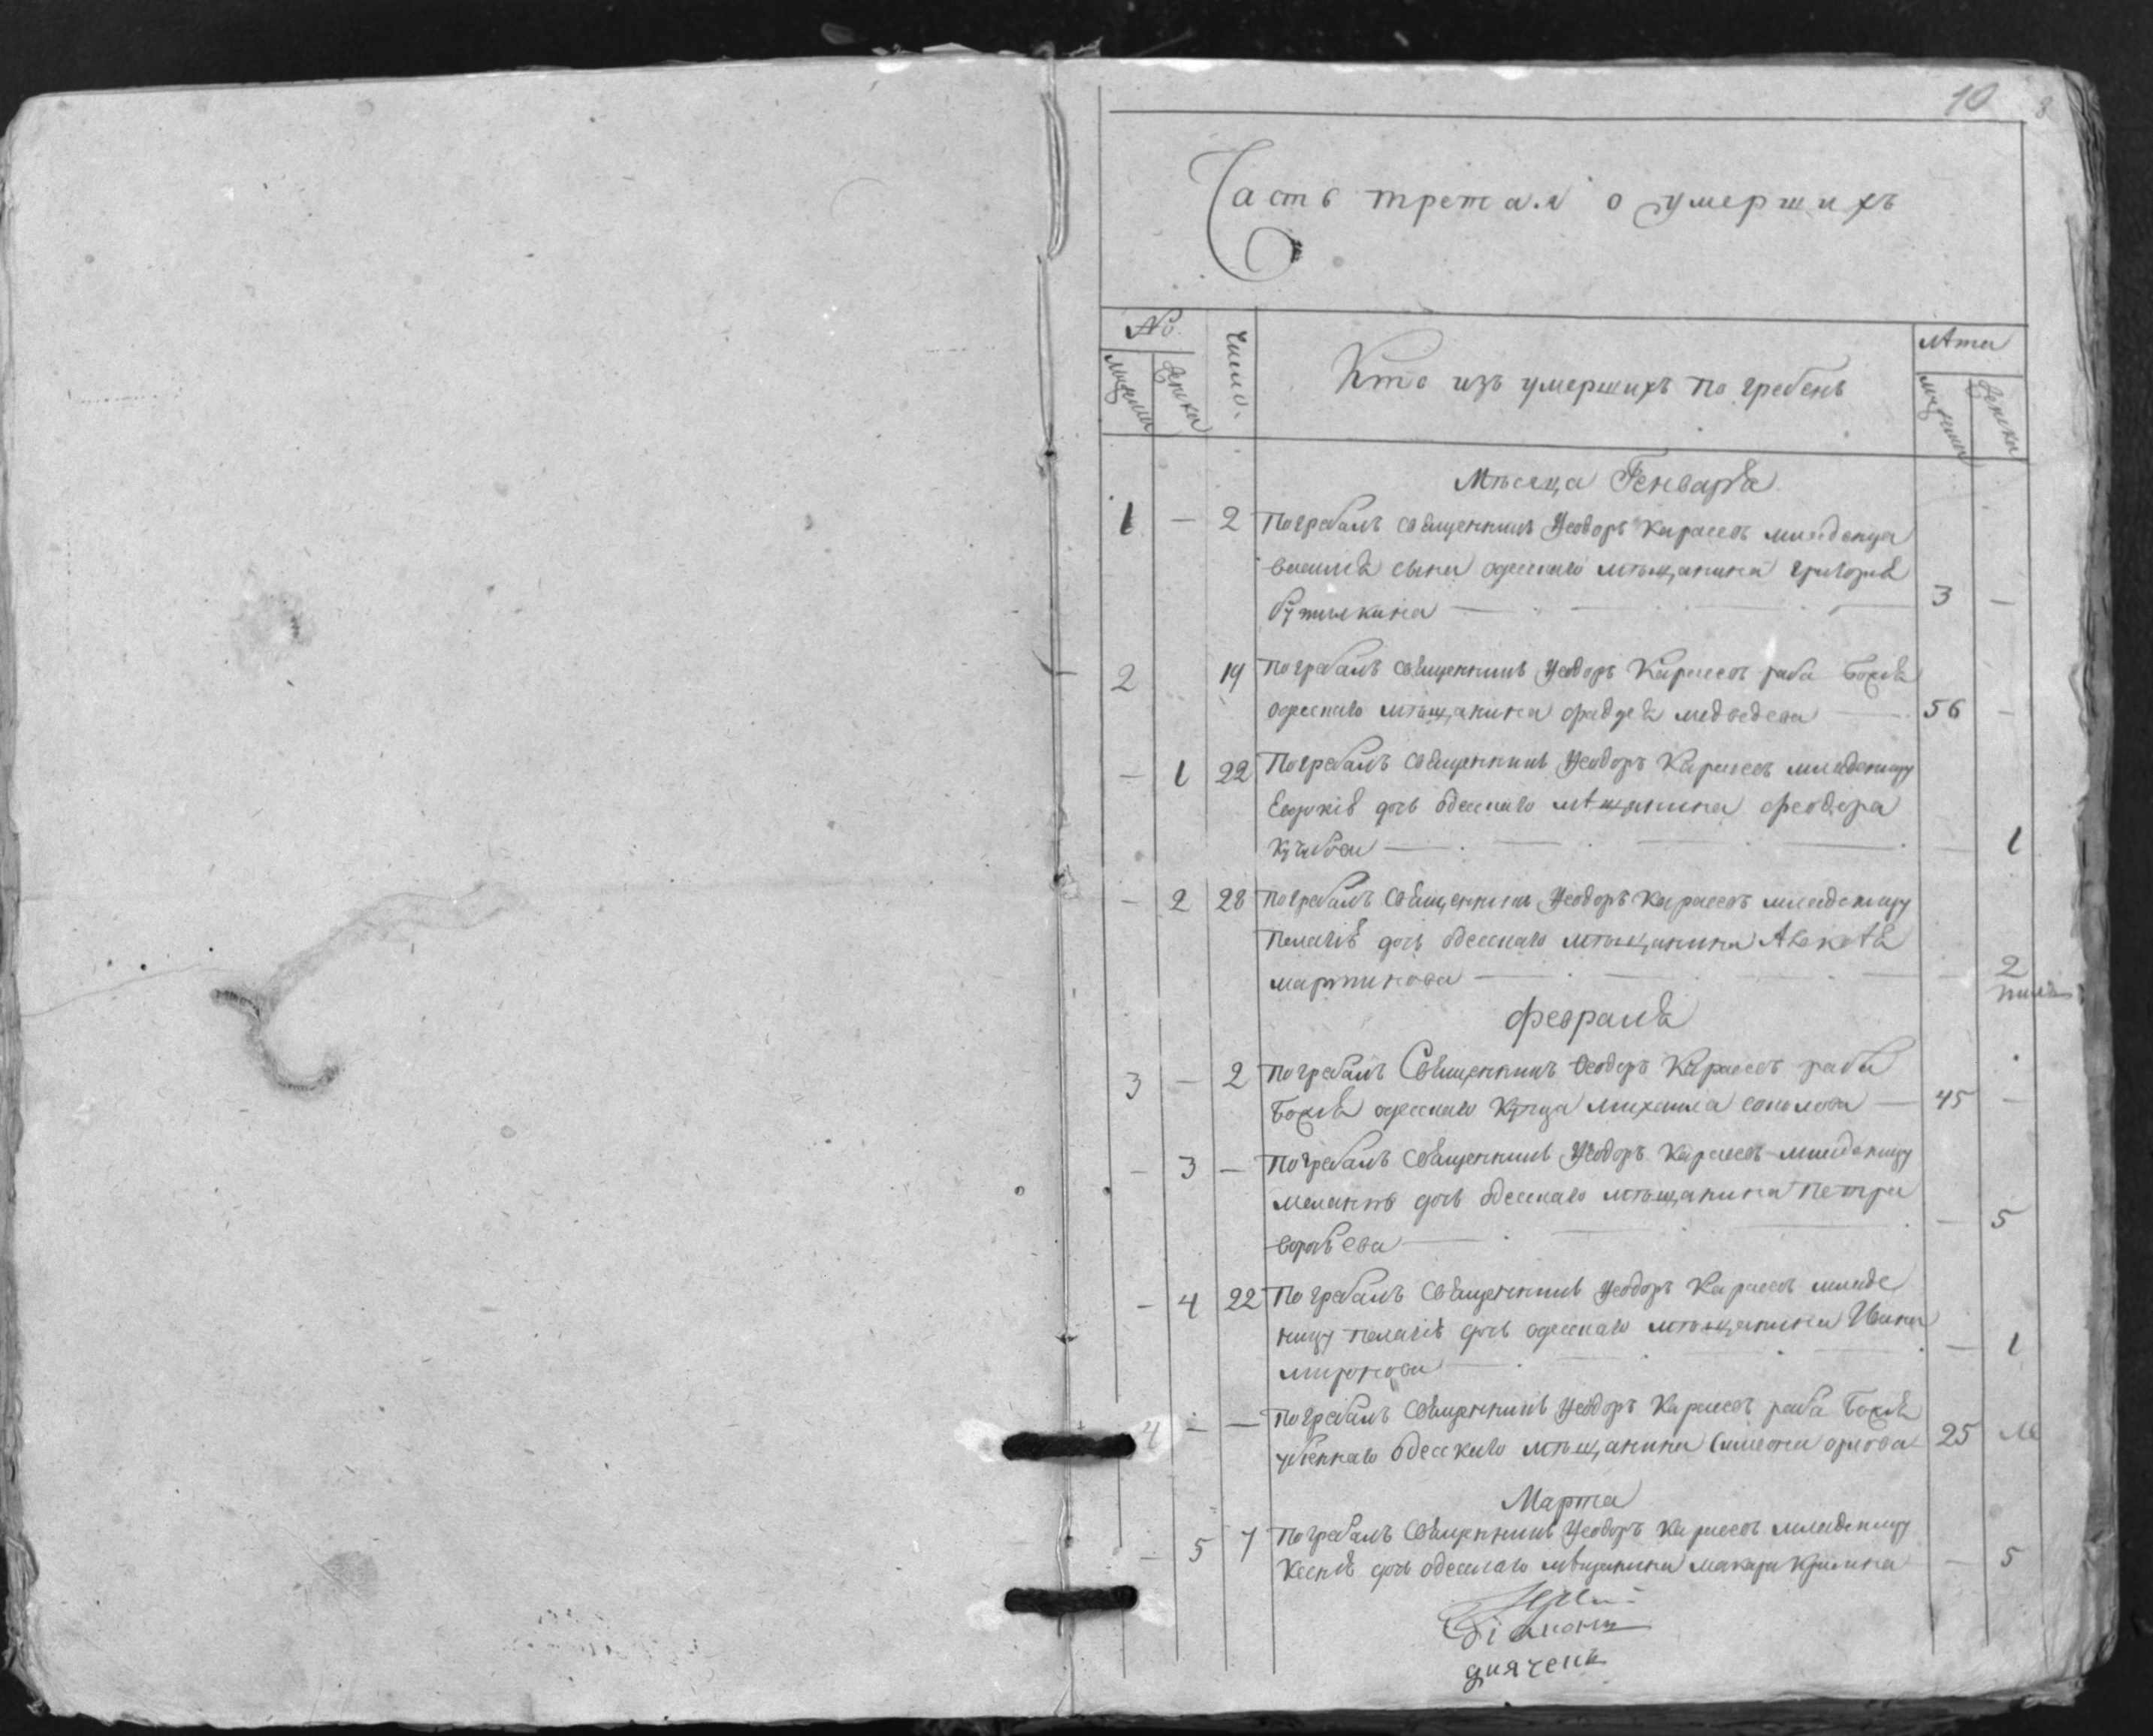 10
Часть третая о умершихъ
№
Число
Лѣта
мужеска
женска
Кто изъ умершихъ погребенъ
мужеска
женска
Мѣсяца Генваря
1 — 2 Погребалъ священникъ Ѳеодоръ Карасевъ младенца
василя сына одескаго мѣщанина григория
бутилкина — 3 —
2 19 Погребалъ священникъ Ѳеодоръ Карасевъ раба Божия
одескаго мѣщанина фаддея медведева — 56 —
— 1 22 Погребалъ священникъ Ѳеодоръ Карасевъ младеницу
Евдокію дочь одескаго мѣщанина феодора
— 1
— 2 28 Погребалъ священникъ Ѳеодоръ Карасевъ младеницу
Пелагію дочь одескаго мѣщанина
мартинова — — 2
февраля
3 — 2 Погребалъ Священникъ Ѳеодоръ Карасевъ раба
Божия одескаго купца михаила соколова — 45 —
— 3 — Погребалъ священникъ Ѳеодоръ Карасевъ младеницу
меланію дочь одескаго мѣщанина петра
воробьева — — 5
— 4 22 Погребалъ священникъ Ѳеодоръ Карасевъ младе
ницу пелагію дочь одескаго мѣщанина Ивана
миронова — — 1
4 — — Погребалъ священникъ Ѳеодоръ Карасевъ раба Божия
убеннаго одескаго мѣщанина Симеона орлова 25
Марта
— 5 7 Погребалъ священникъ Ѳеодоръ Карасевъ младеницу
Ксенію дочь одескаго мѣщанина макара — 5